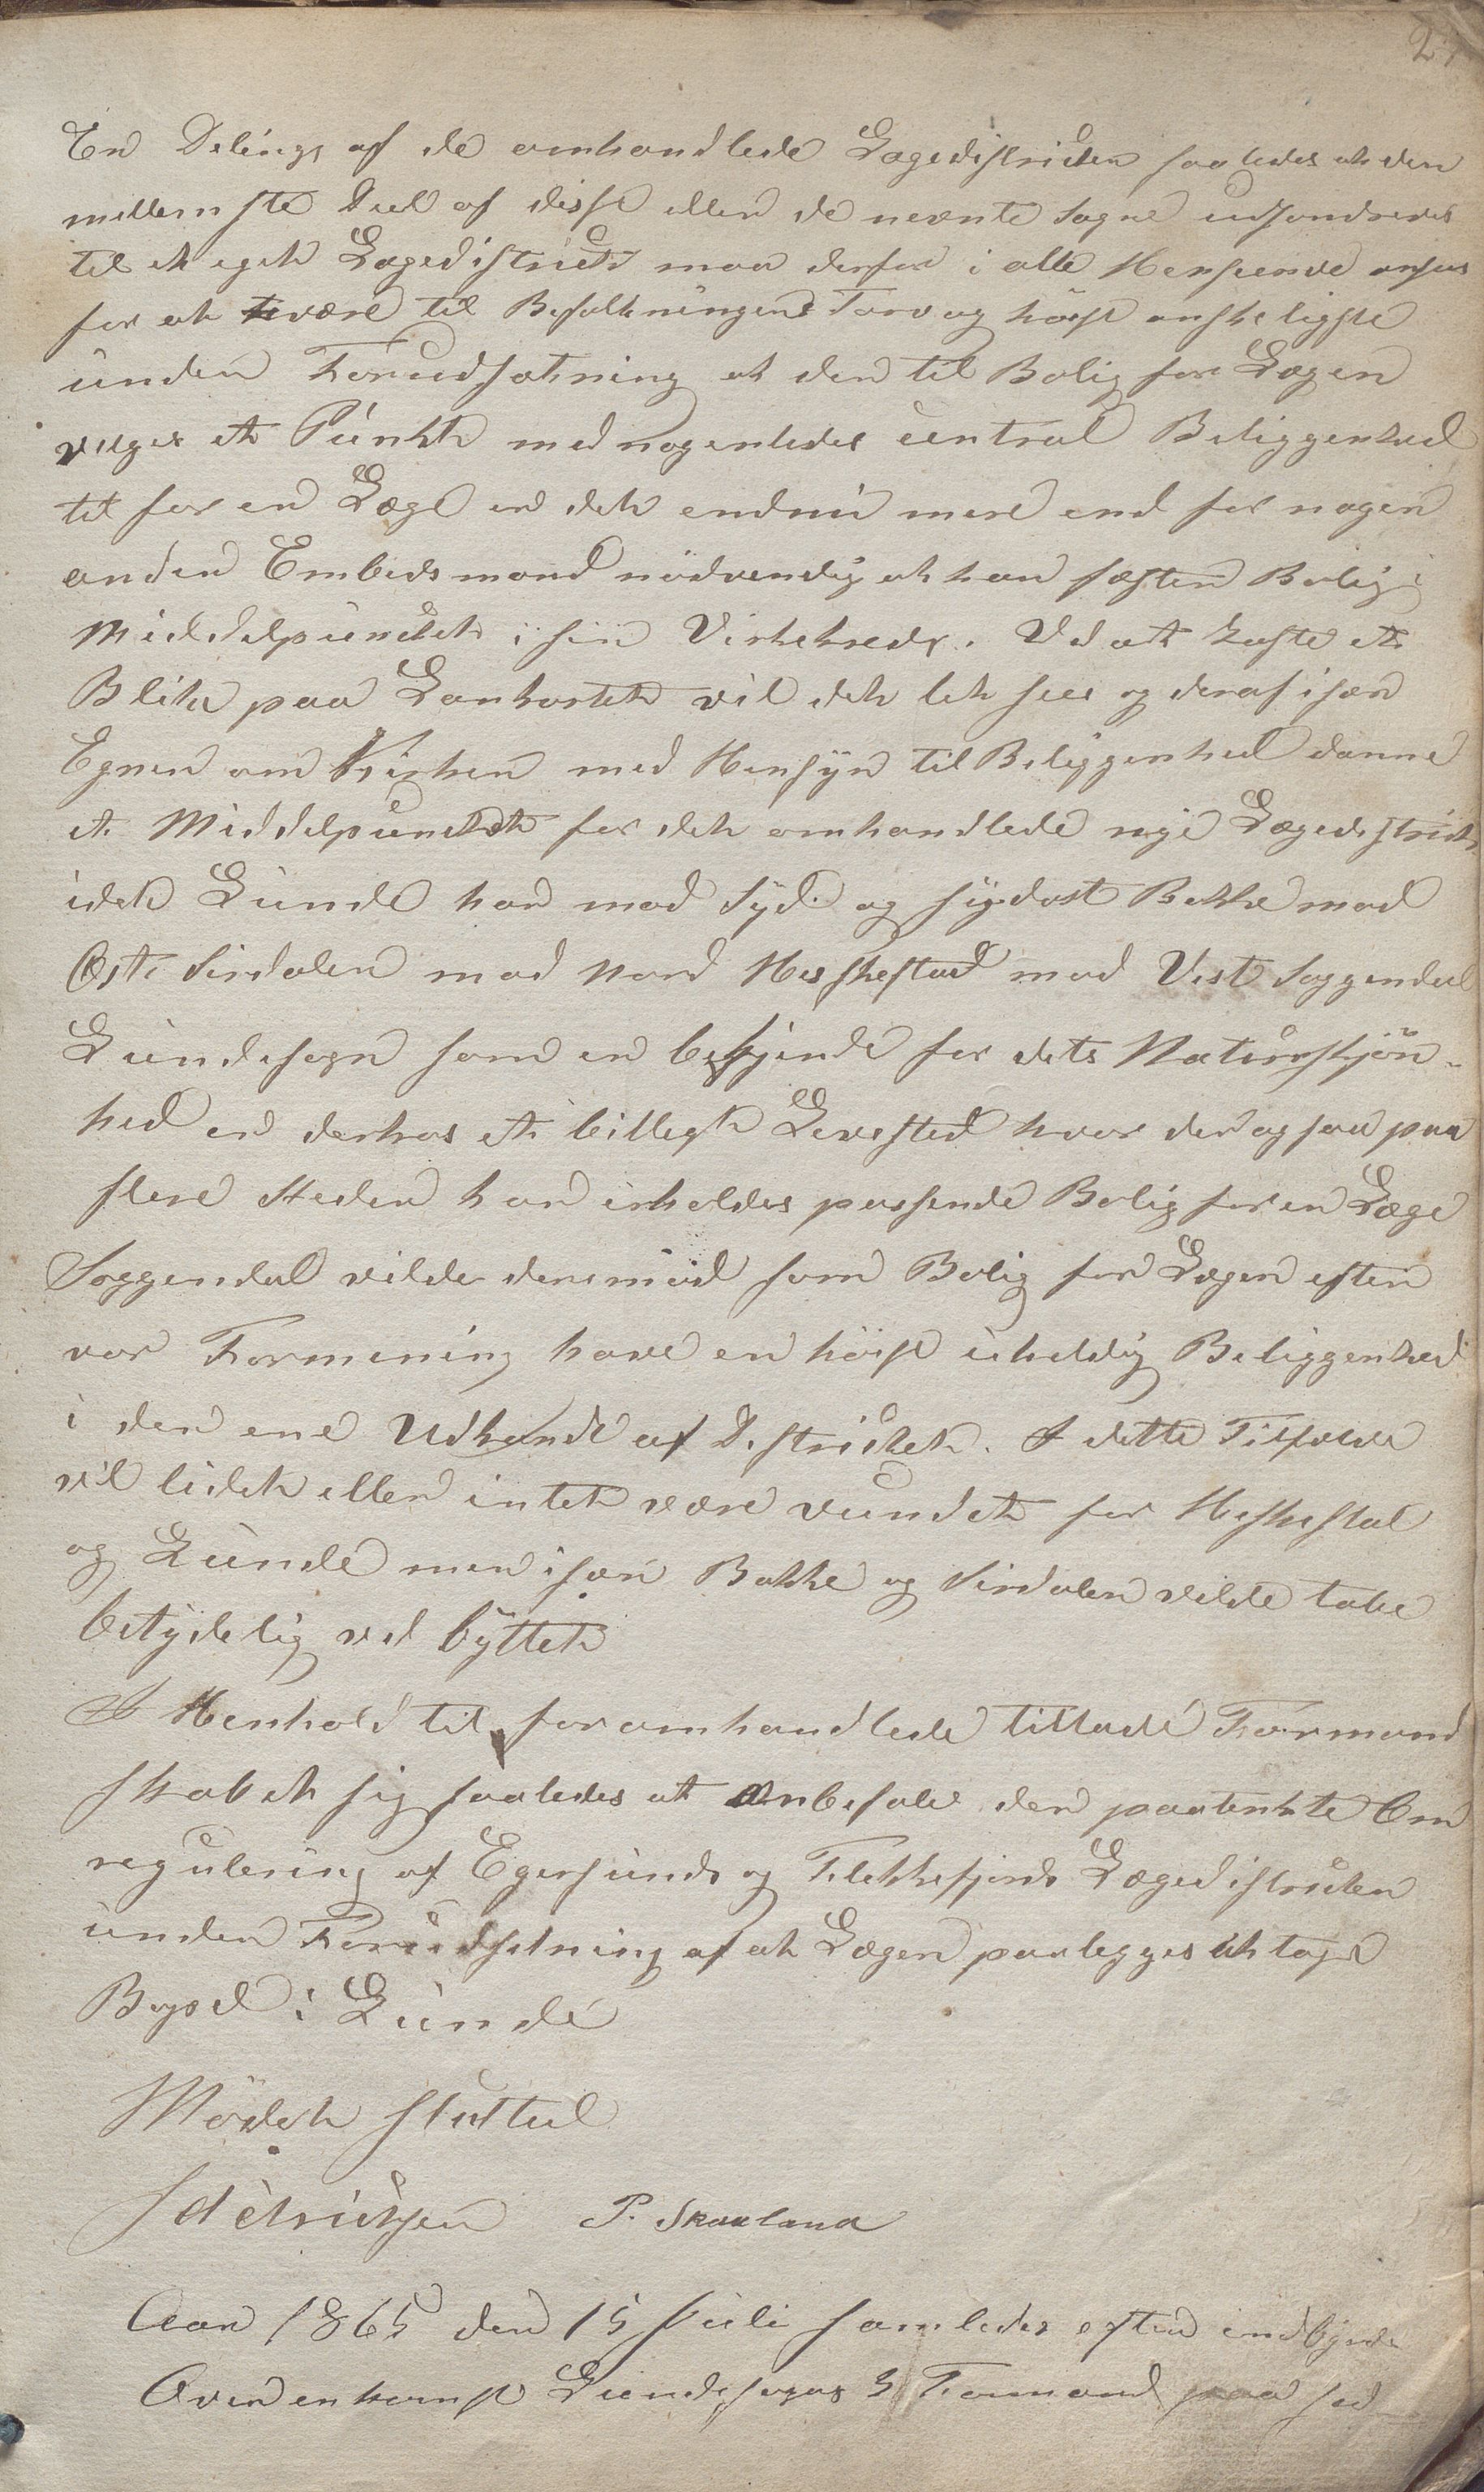 27
En Deling af de omhandlede Lægedistricter saaledes at den
mellemste Deel af disse eller de nevnte Sogne udsondredes
til et eget Lægedistrict maa derfor i alle Henseende ansees
for at være til Befolkningens Tarv og høist ønskeligste
under Forudsætning at der til Bolig for Lægen
velges et Punkt med nogenledes central Beliggenhed
til for en Læge er det endnu mere end for nogen
anden Embedsmand nødvendig at han fæster Bolig i
Middelpunctet i sin Virkekreds. Ved at kaste et
Blik paa Lankortet vil det let sees og deraf især
Egnen om Kirken med Hensyn til Beliggenhed danne
et Middelpunctet for det omhandlede nye Lægedistrict
idet Lunde har mod Syd og sydost Bakke mod
Øst Sirdalen mod Nord Heskestad mod Vest Soggendal
Lundesogn som er bekjendt for dets Naturskjøn-
hed er derhos et billegt Levested hvor der ogsaa paa
flere Steder kan erholdes passende Bolig for en Læge
Soggendal vilde derimod som Bolig for Lægen efter
vor Formening have en høist uheldig Beliggenhed
i den ene Udkandt af Districtet. I dette Tilfælde
vil lidet eller intet være vundet for Heskestad
og Lunde men især Bakke og Sirdalen vilde tabe
betydelig ved byttet
I Henhold til foromhandlede tillader Formand
skabet sig saaledes at anbefale den paatenkte Om
regulering af Egersunds og Flekkefjords Lægedistricter
under Forudsetning af at Lægen paalegges at tage
Bopel i Lunde
Mödet sluttet
P. Skaaland
Aar 1865 den 15 Juli samledes efter indbyrdes
Overenkomst Lundesogns Formand paa sed